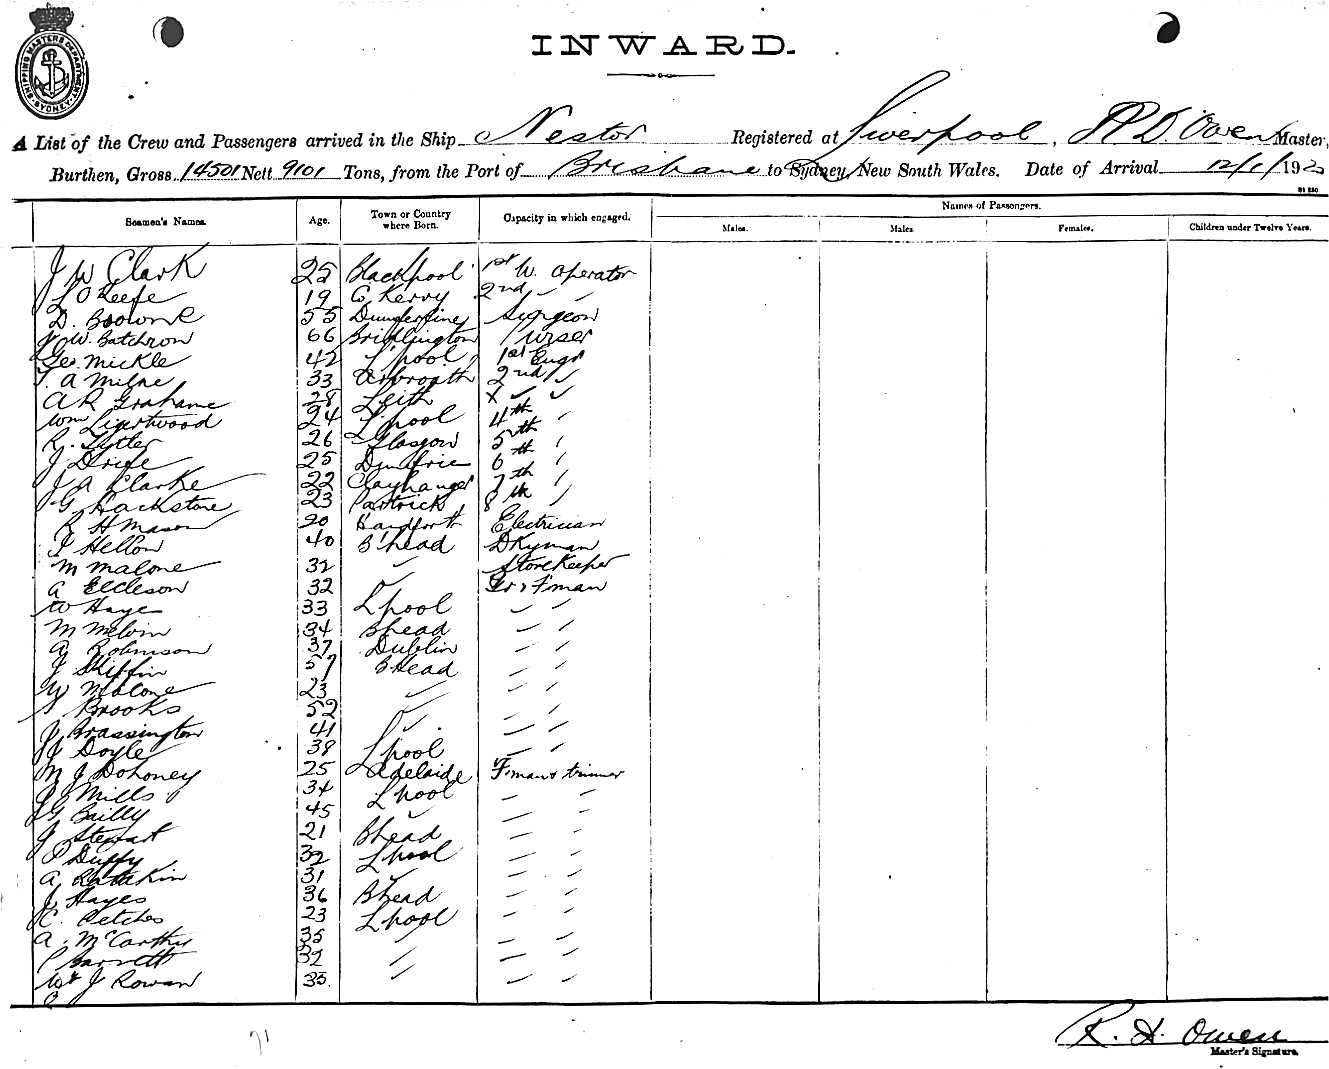 SHIPPING MASTERS DEPARTMENT SYDNEY
INWARD.
A List of the Crew and Passengers arrived in the Ship Nestor Registered at Liverpool, R D. Owen Master,
Burthen, Gross 14501 Nett 9101 Tons, from the Port of Brisbane to Sydney, New South Wales. Date of Arrival 12/1/1920
Seamen's Names. Age. Town or Country where Born. Capacity in which engaged. Names of Passengers.
Males. Males Females. Children under Twelve Years.
J W Clark 25 Blackpool 1st W. Operator
J O'Keefe 19 Co Kerry 2nd " "
D. Browne 55 Surgeon
W. Batchron 66 Bridlington Purser
Geo. Mickle 42 L'pool 1st Engr
A Milne 33 Arbroath 2nd "
A R Grahame 28 Leith " "
Wm Ligertwood 24 L'pool 4th "
R. Tytler 26 Glasgow 5th "
J Drife 25 6th "
J A Clarke 22 Clayhanger 7th "
G Hackstone 23 Partrick 8th "
R H Mason 20 Handforth Electrician
J Hellon 40 B'head DKyman
M Malone 32 " Storekeeper
A Eccleson 32 " F'man
W Hayes 33 Lpool " "
M Melvin 34 Bhead " "
A Robinson 37 Dublin " "
J Skiffin 57 BHead " "
W Malone 23 " " "
Brooks 52 " " "
J Brassington 41 " " "
J Doyle 38 Lpool " "
M J Dohoney 25 Adelaide F.man & trimmer
J Mills 34 Lpool " "
J G Bailly 45 " " "
J Stewart 21 Bhead " "
P Duffy 32 Lpool " "
A 31 " " "
J Hayes 36 Bhead " "
C. Petches 23 Lpool " "
A. McCarthy 35 " " "
P Barrett 32 " " "
Wm J Rowan 35. " " "
71
R. D. Owen
Master's Signature.